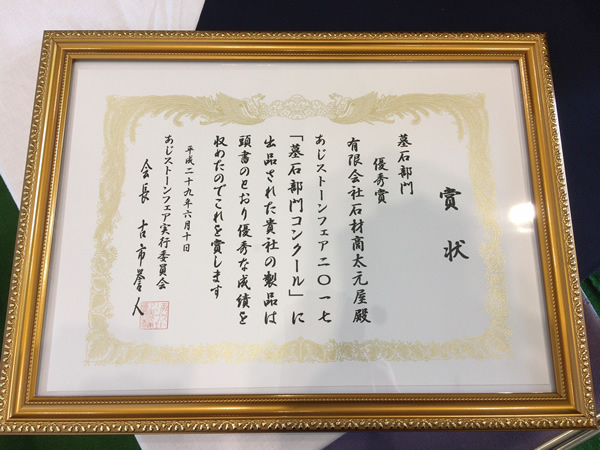 賞状
墓石部門
優秀賞
有限会社石材商太元屋殿
あじストーンフェア二〇一七
「墓石部門コンクール」に
出品された貴社の製品は
頭書のとおり優秀な成績を
収めたのでこれを賞します
平成二十九年六月十日
あじストーンフェア実行委員会
会長 古市誉人